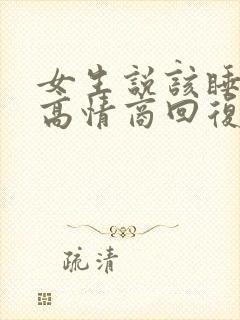 女生說該睡
高情商回復
疏清